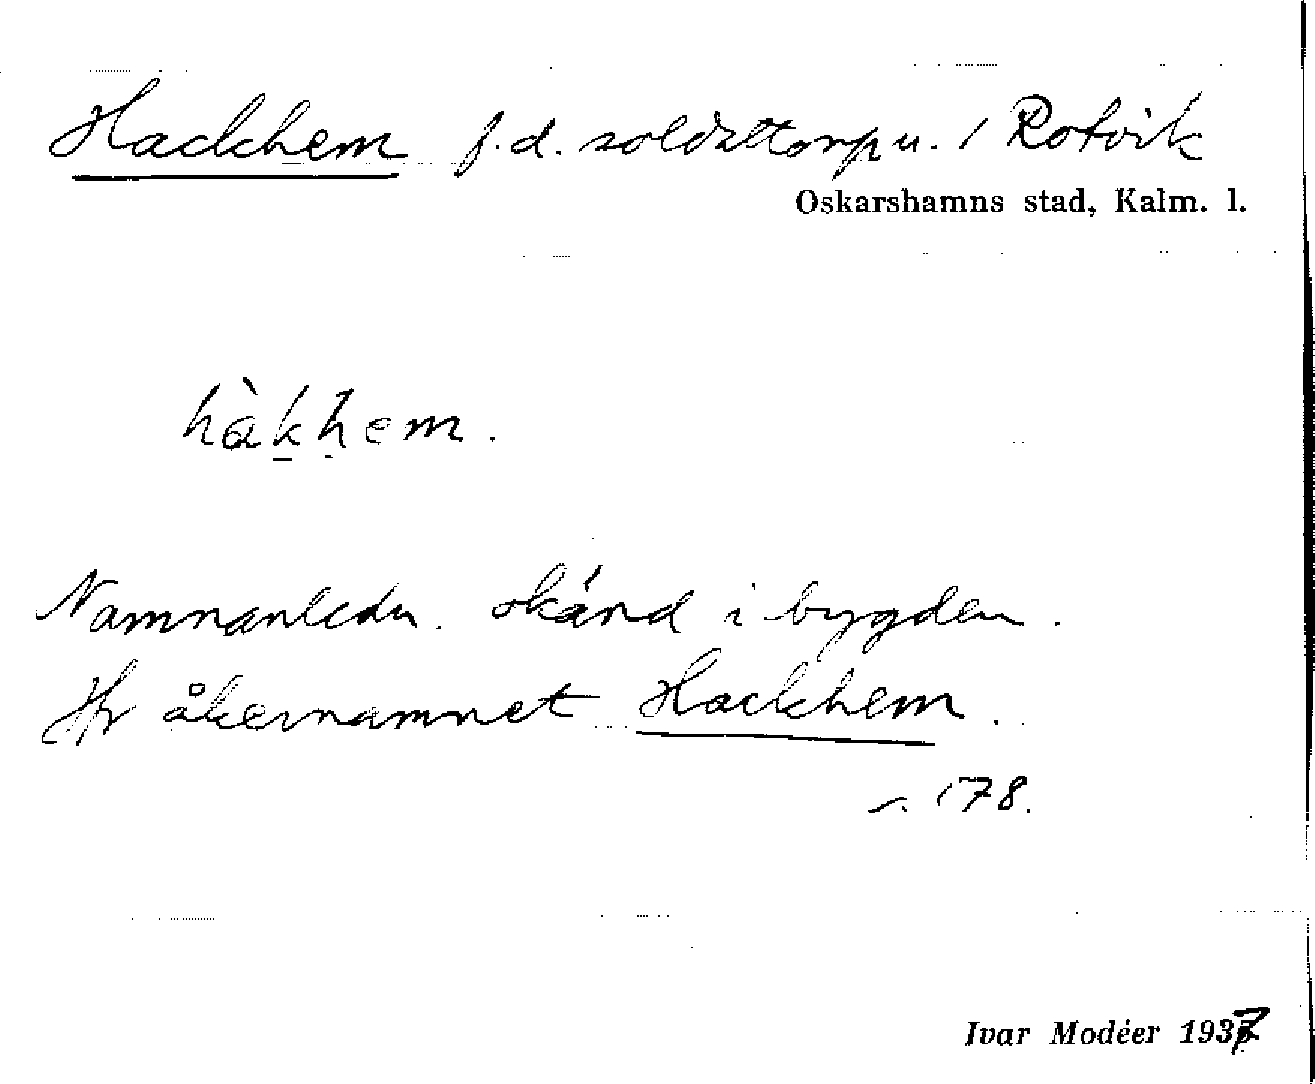 Hackhem f.d. soldattorp u. / Rotvik
Oskarshamns stad, Kalm. l.
hàkhem.
Namnanledn. okänd i bygden.
Jfr åkernamnet Hackhem.
s. 178.
Ivar Modéer 1937